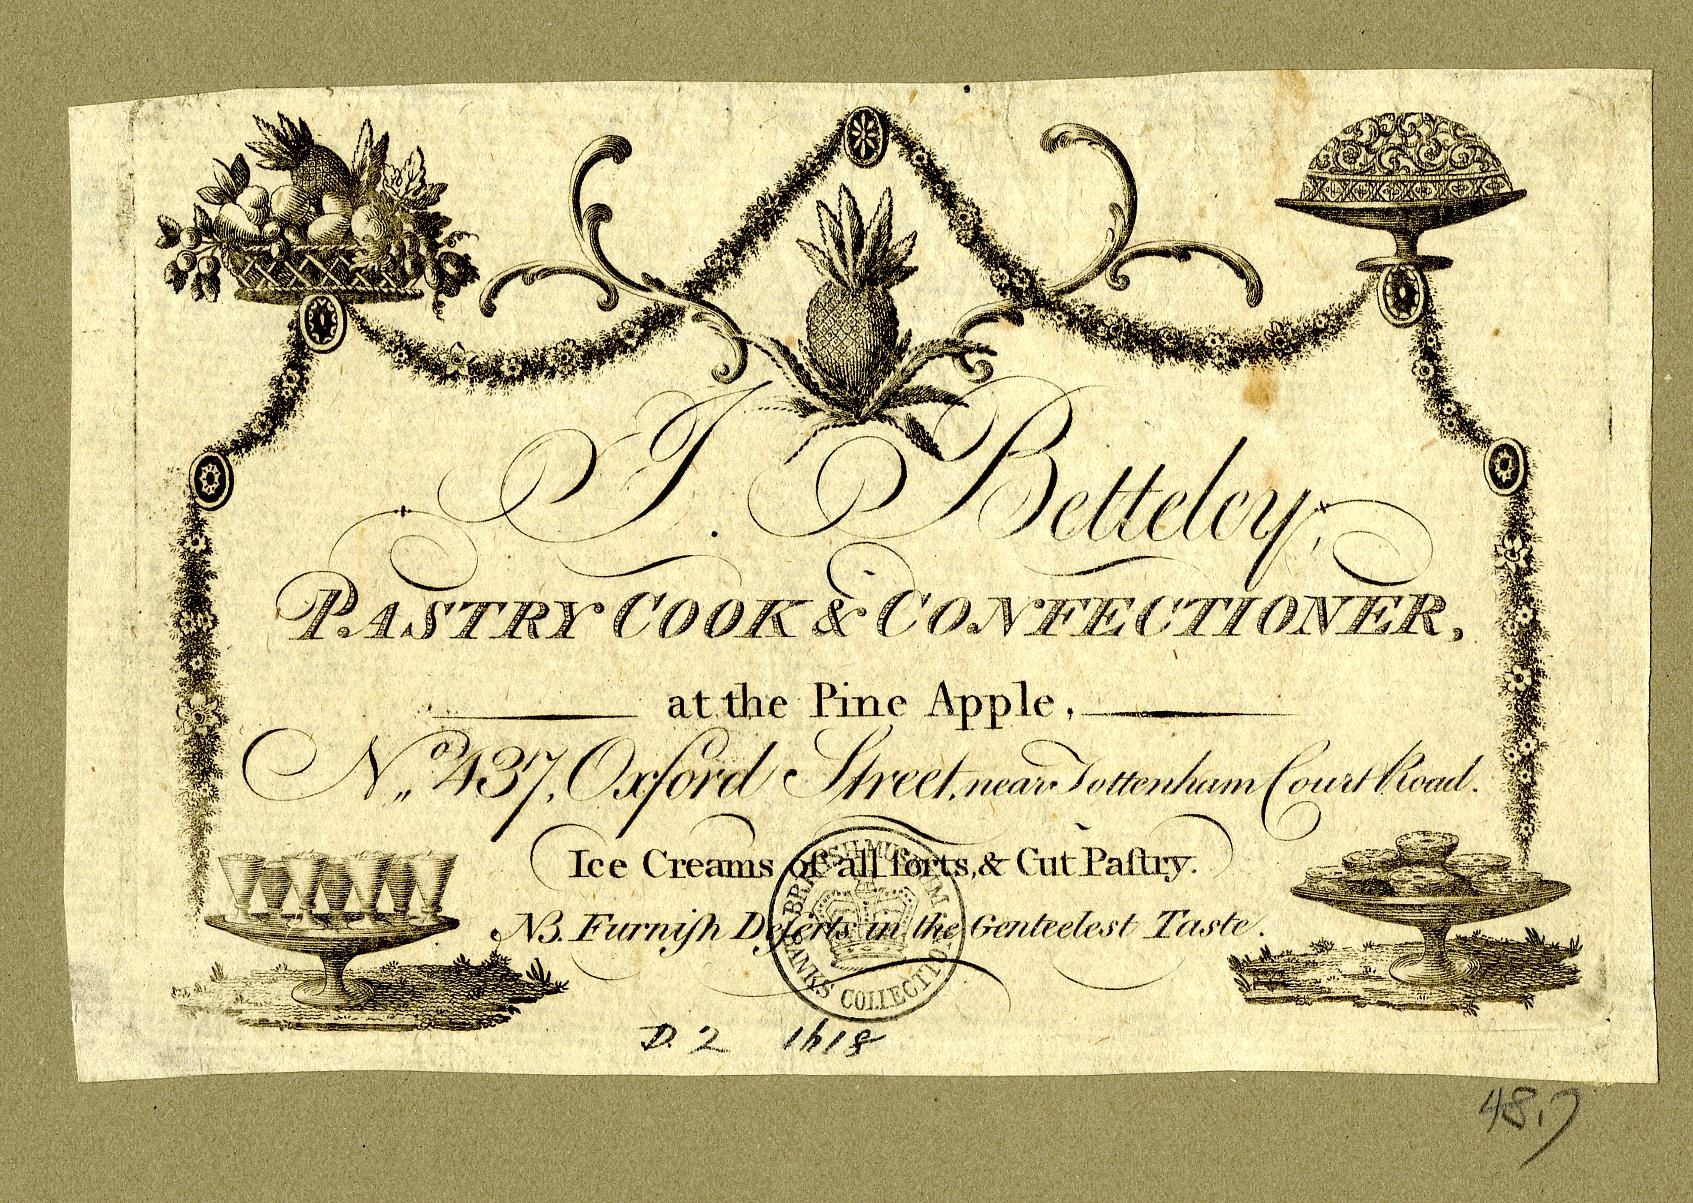 J. Betteley,
PASTRY COOK & CONFECTIONER,
at the Pine Apple,
No. 437, Oxford Street, near Tottenham Court Road.
Ice Creams of all ſorts, & Cut Paſtry.
NB. Furniſh Deſerts in the Genteelest Taste.
BRITISH MUSEUM
BANKS COLLECTION
D.2
48.7